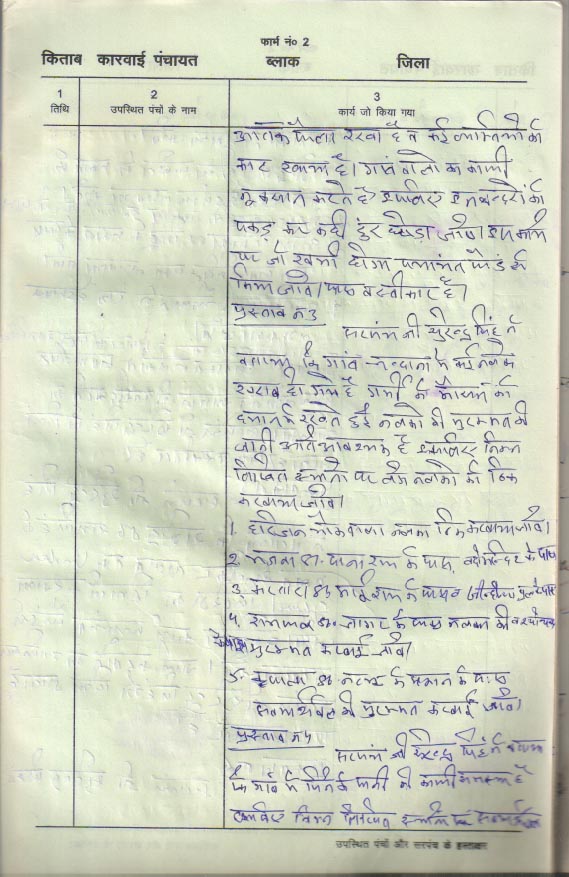 फार्म नं० 2
किताब कारवाई पंचायत ब्लाक जिला
1 2 3
तिथि उपस्थित पंचों के नाम कार्य जो किया गया
आतंक फैला रखा है व कई व्यक्तियों को
काट खाया है। गांव वालों का काफी
नुकसान करते है इसलिए इन बन्दरों को
पकड़ कर कहीं दूर छोड़ा जावे। इस काम
पर जो खर्चा होगा पंचायत फंड से
किया जावे। पास व स्वीकार है।
प्रस्ताव नं 3
सरपंच श्री सुरेन्द्र सिंह ने
बताया कि गांव में कई नलके
खराब हो गये है गर्मी के मौसम को
ध्यान में रखते हुई नलको की मुरम्मत की
जानी अति आवश्यक है इसलिए निम्न
लिखित स्थानों पर लगे नलको को ठिक
करवाया जावे।
1. हरिजन चौक वाला नलका ठिक करवाया जावे।
2. के पास, के पास
3. के पास व
4. के पास नलका की
मुरम्मत करवाई जावे।
5. के मकान के पास
की मुरम्मत करवाई जावे।
प्रस्ताव नं 4
सरपंच श्री सुरेन्द्र सिंह ने बताया
कि गांव में पिने के पानी की काफी समस्या है
इसलिए निम्न लिखित स्थानों पर
उपस्थित पंचों और सरपंच के हस्ताक्षर